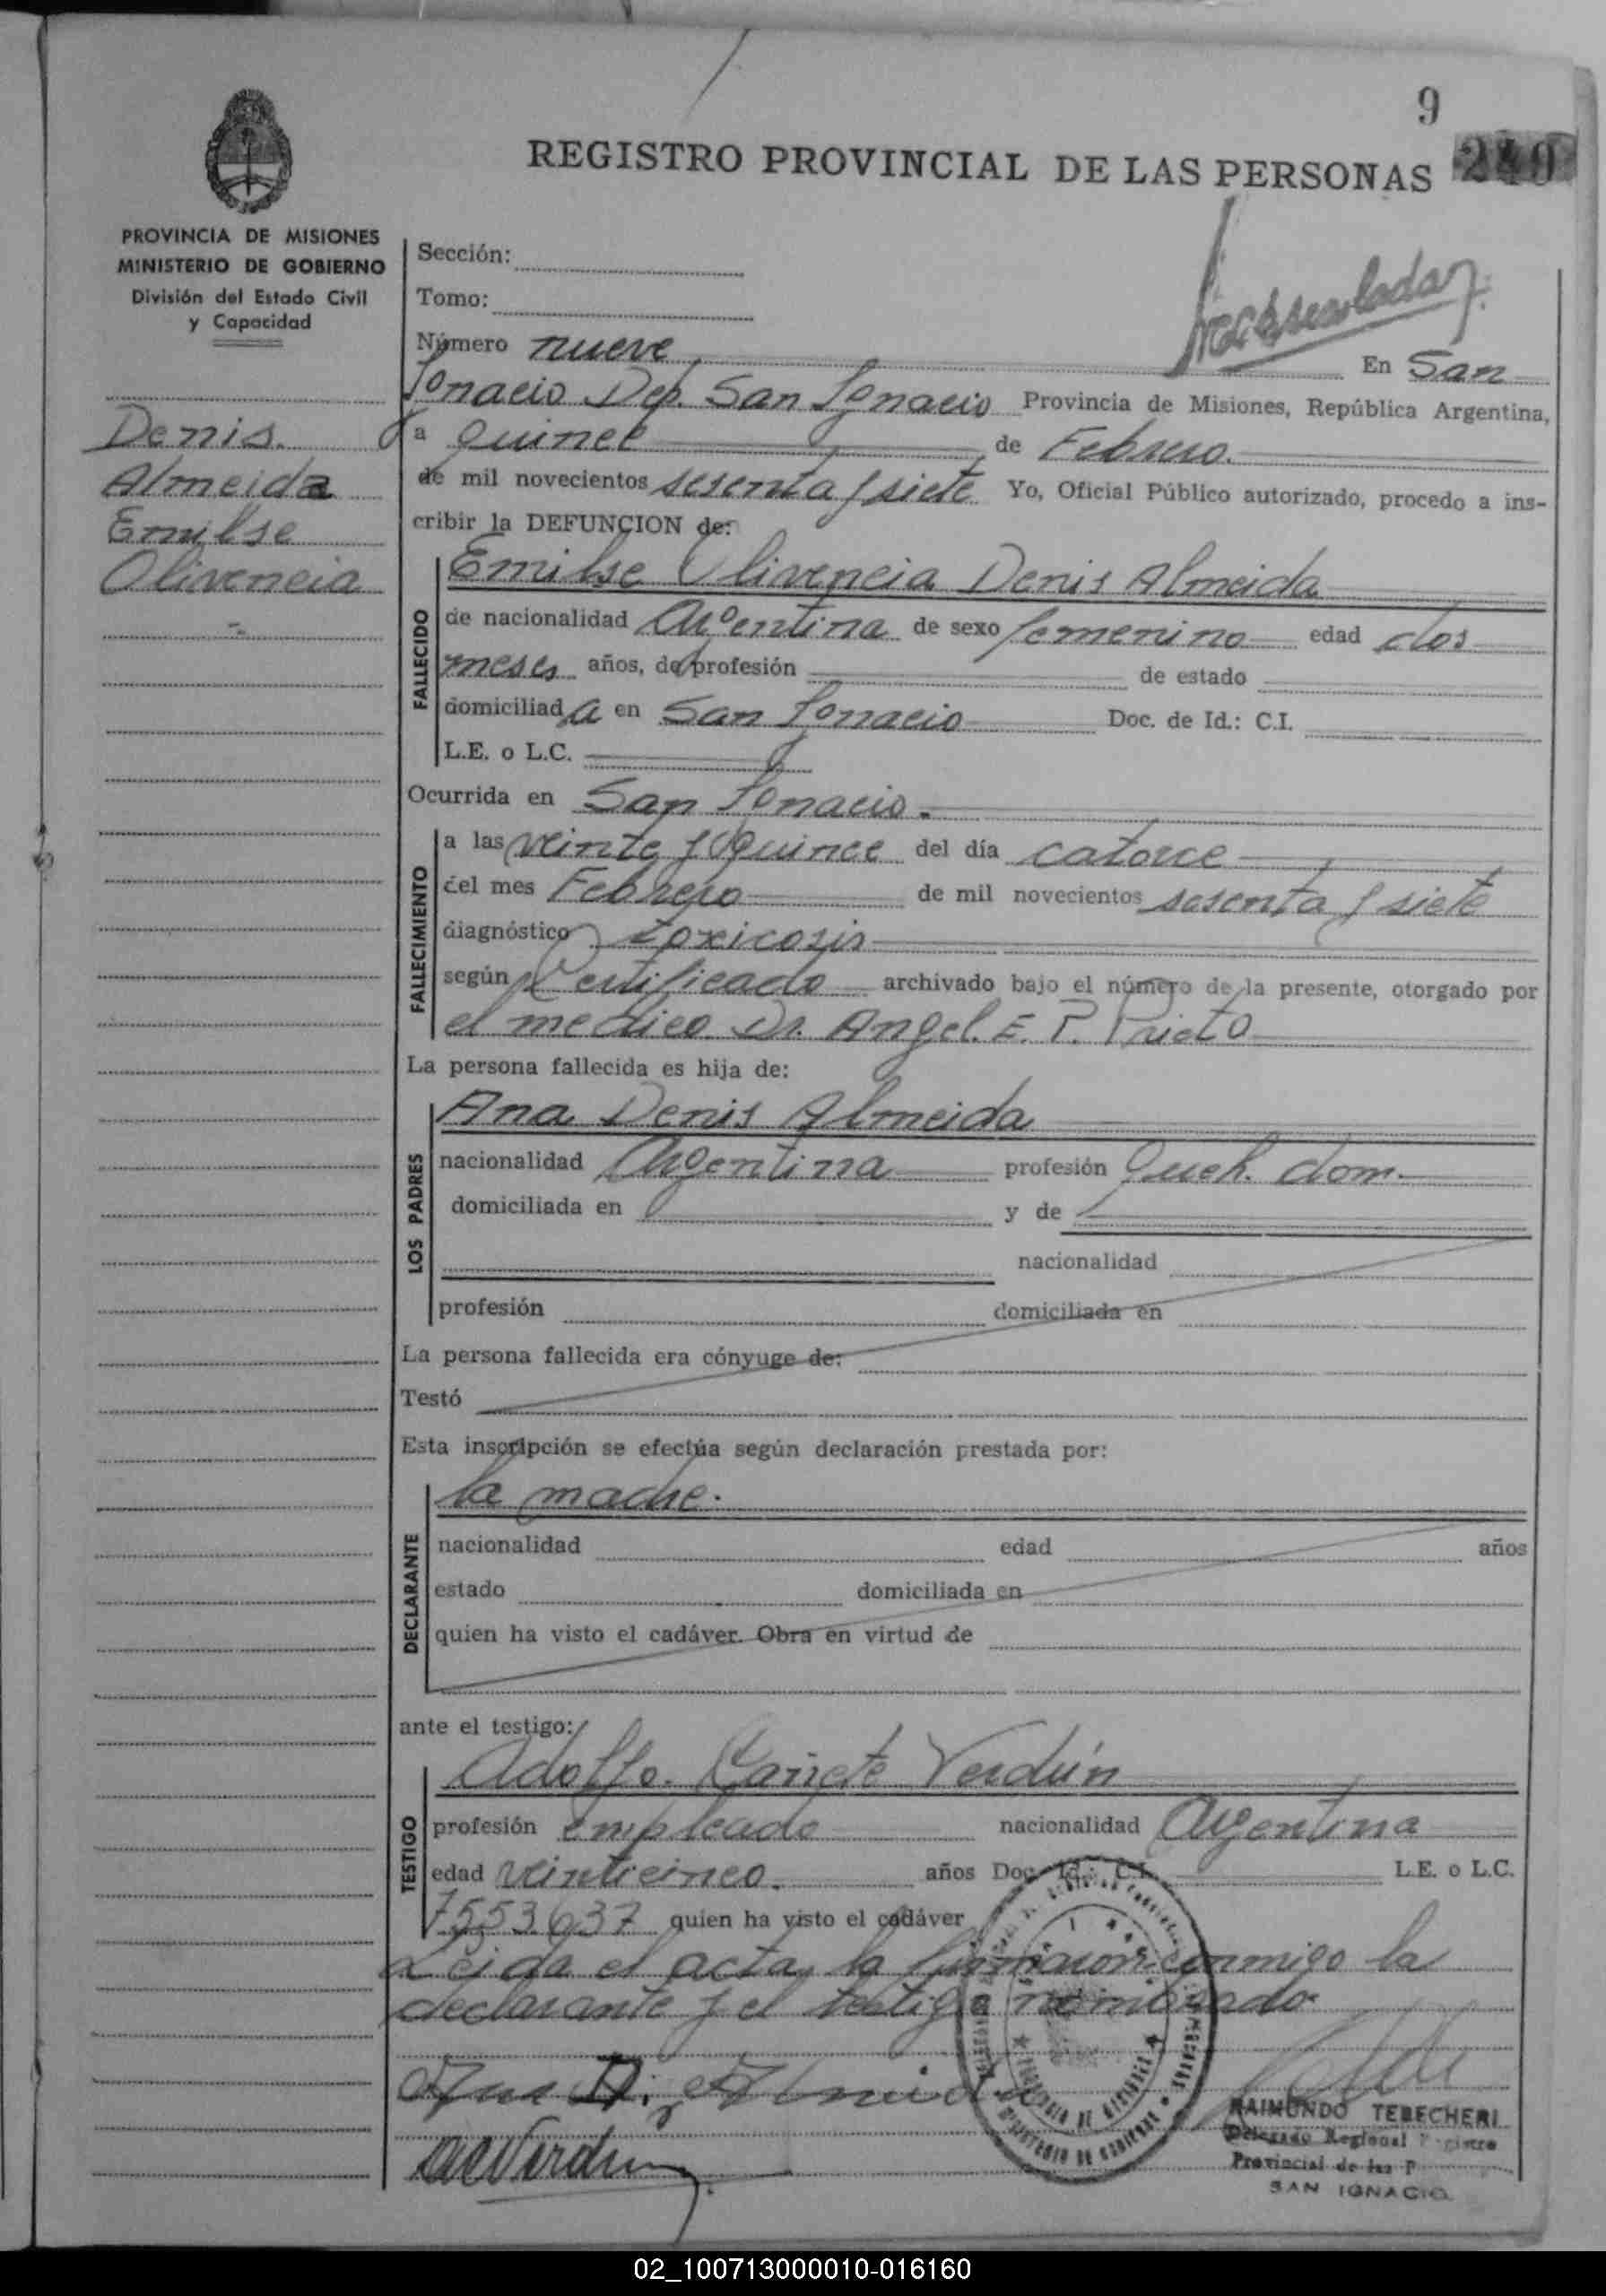 9
REGISTRO PROVINCIAL DE LAS PERSONAS 240
PROVINCIA DE MISIONES
MINISTERIO DE GOBIERNO
División del Estado Civil
y Capacidad
Denis
Almeida
Emilse
Olivencia
Sección:
Tomo:
Número nueve En San
Ignacio Dep. San Ignacio Provincia de Misiones, República Argentina,
a quince de Febrero.
de mil novecientos sesenta y siete Yo, Oficial Público autorizado, procedo a ins-
cribir la DEFUNCION de:
FALLECIDO
Emilse Olivencia Denis Almeida
de nacionalidad Argentina de sexo femenino edad dos
meses años, de profesión de estado
domiciliad a en San Ignacio Doc. de Id.: C.I.
L.E. o L.C.
Ocurrida en San Ignacio.
FALLECIMIENTO
a las veinte y quince del día catorce
del mes Febrero de mil novecientos sesenta y siete
diagnóstico toxicosis
según Certificado archivado bajo el número de la presente, otorgado por
el medico Dr. Angel. E. P. Prieto
La persona fallecida es hija de:
LOS PADRES
Ana Denis Almeida
nacionalidad Argentina profesión Queh. dom.
domiciliada en y de
nacionalidad
profesión domiciliada en
La persona fallecida era cónyuge de:
Testó
Esta inscripción se efectúa según declaración prestada por:
DECLARANTE
la madre.
nacionalidad edad años
estado domiciliada en
quien ha visto el cadáver. Obra en virtud de
ante el testigo:
TESTIGO
Adolfo Cañete Verdún
profesión empleado nacionalidad Argentina
edad veinticinco. años Doc. Id.: C.I. L.E. o L.C.
7553637 quien ha visto el cadáver
Leida el acta, la firmaron conmigo la
declarante y el testigo nombrado
Ana D. Almeida
ACVerdun
RAIMUNDO TEBECHERI
Delegado Regional Registro
Provincial de las P
SAN IGNACIO
02_100713000010-016160